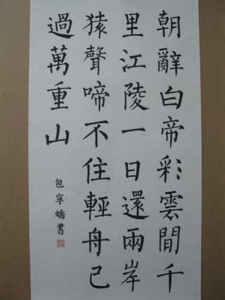 朝辭白帝彩雲間千
里江陵一日還兩岸
猿聲啼不住輕舟已
過萬重山
包寧嬌書